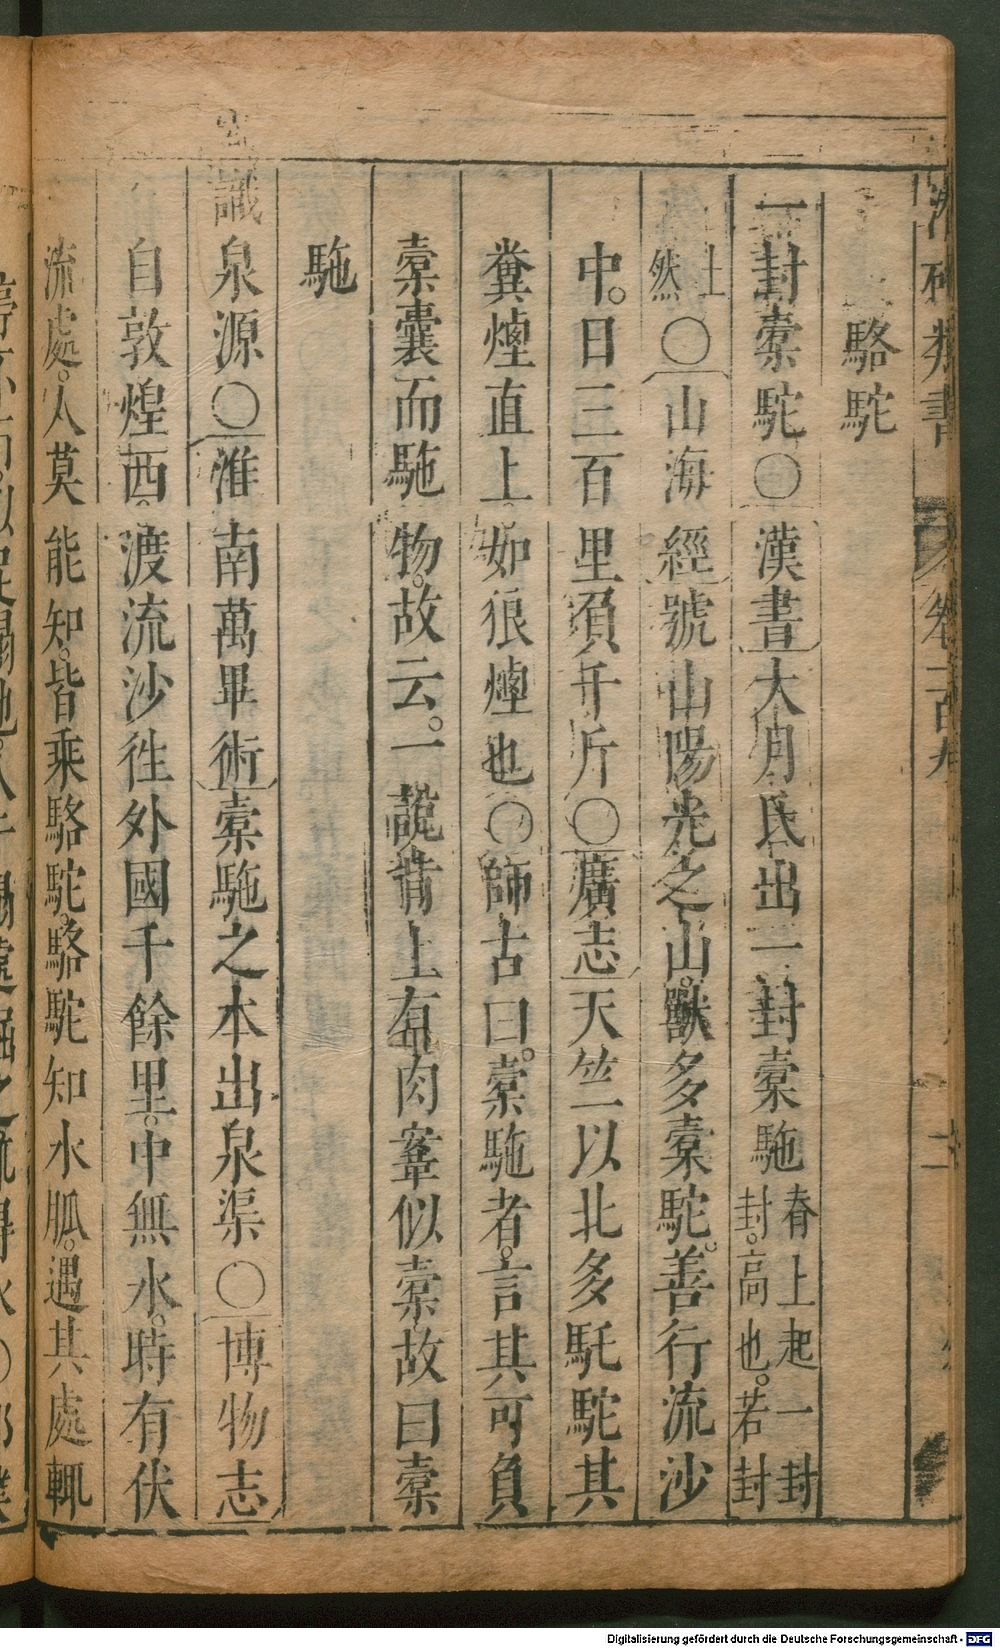 駱駝
一封橐駝○漢書大月氏出一封橐駞脊上起一封封高也若封
土然○山海經號山陽光之山獸多橐駝善行流沙
中日三百里負千斤○廣志天竺以北多馲駝其
糞煙直上如狼煙也○師古曰橐駞者言其可負
橐囊而駞物故云一說背上有肉鞌似橐故曰橐
駞
識泉源○淮南萬畢術橐駞之本出泉渠○博物志
自敦煌西渡流沙徃外國千餘里中無水時有伏
流處人莫能知皆乘駱駝駱駝知水脈遇其處輒
Digitalisierung gefördert durch die Deutsche Forschungsgemeinschaft - DFG